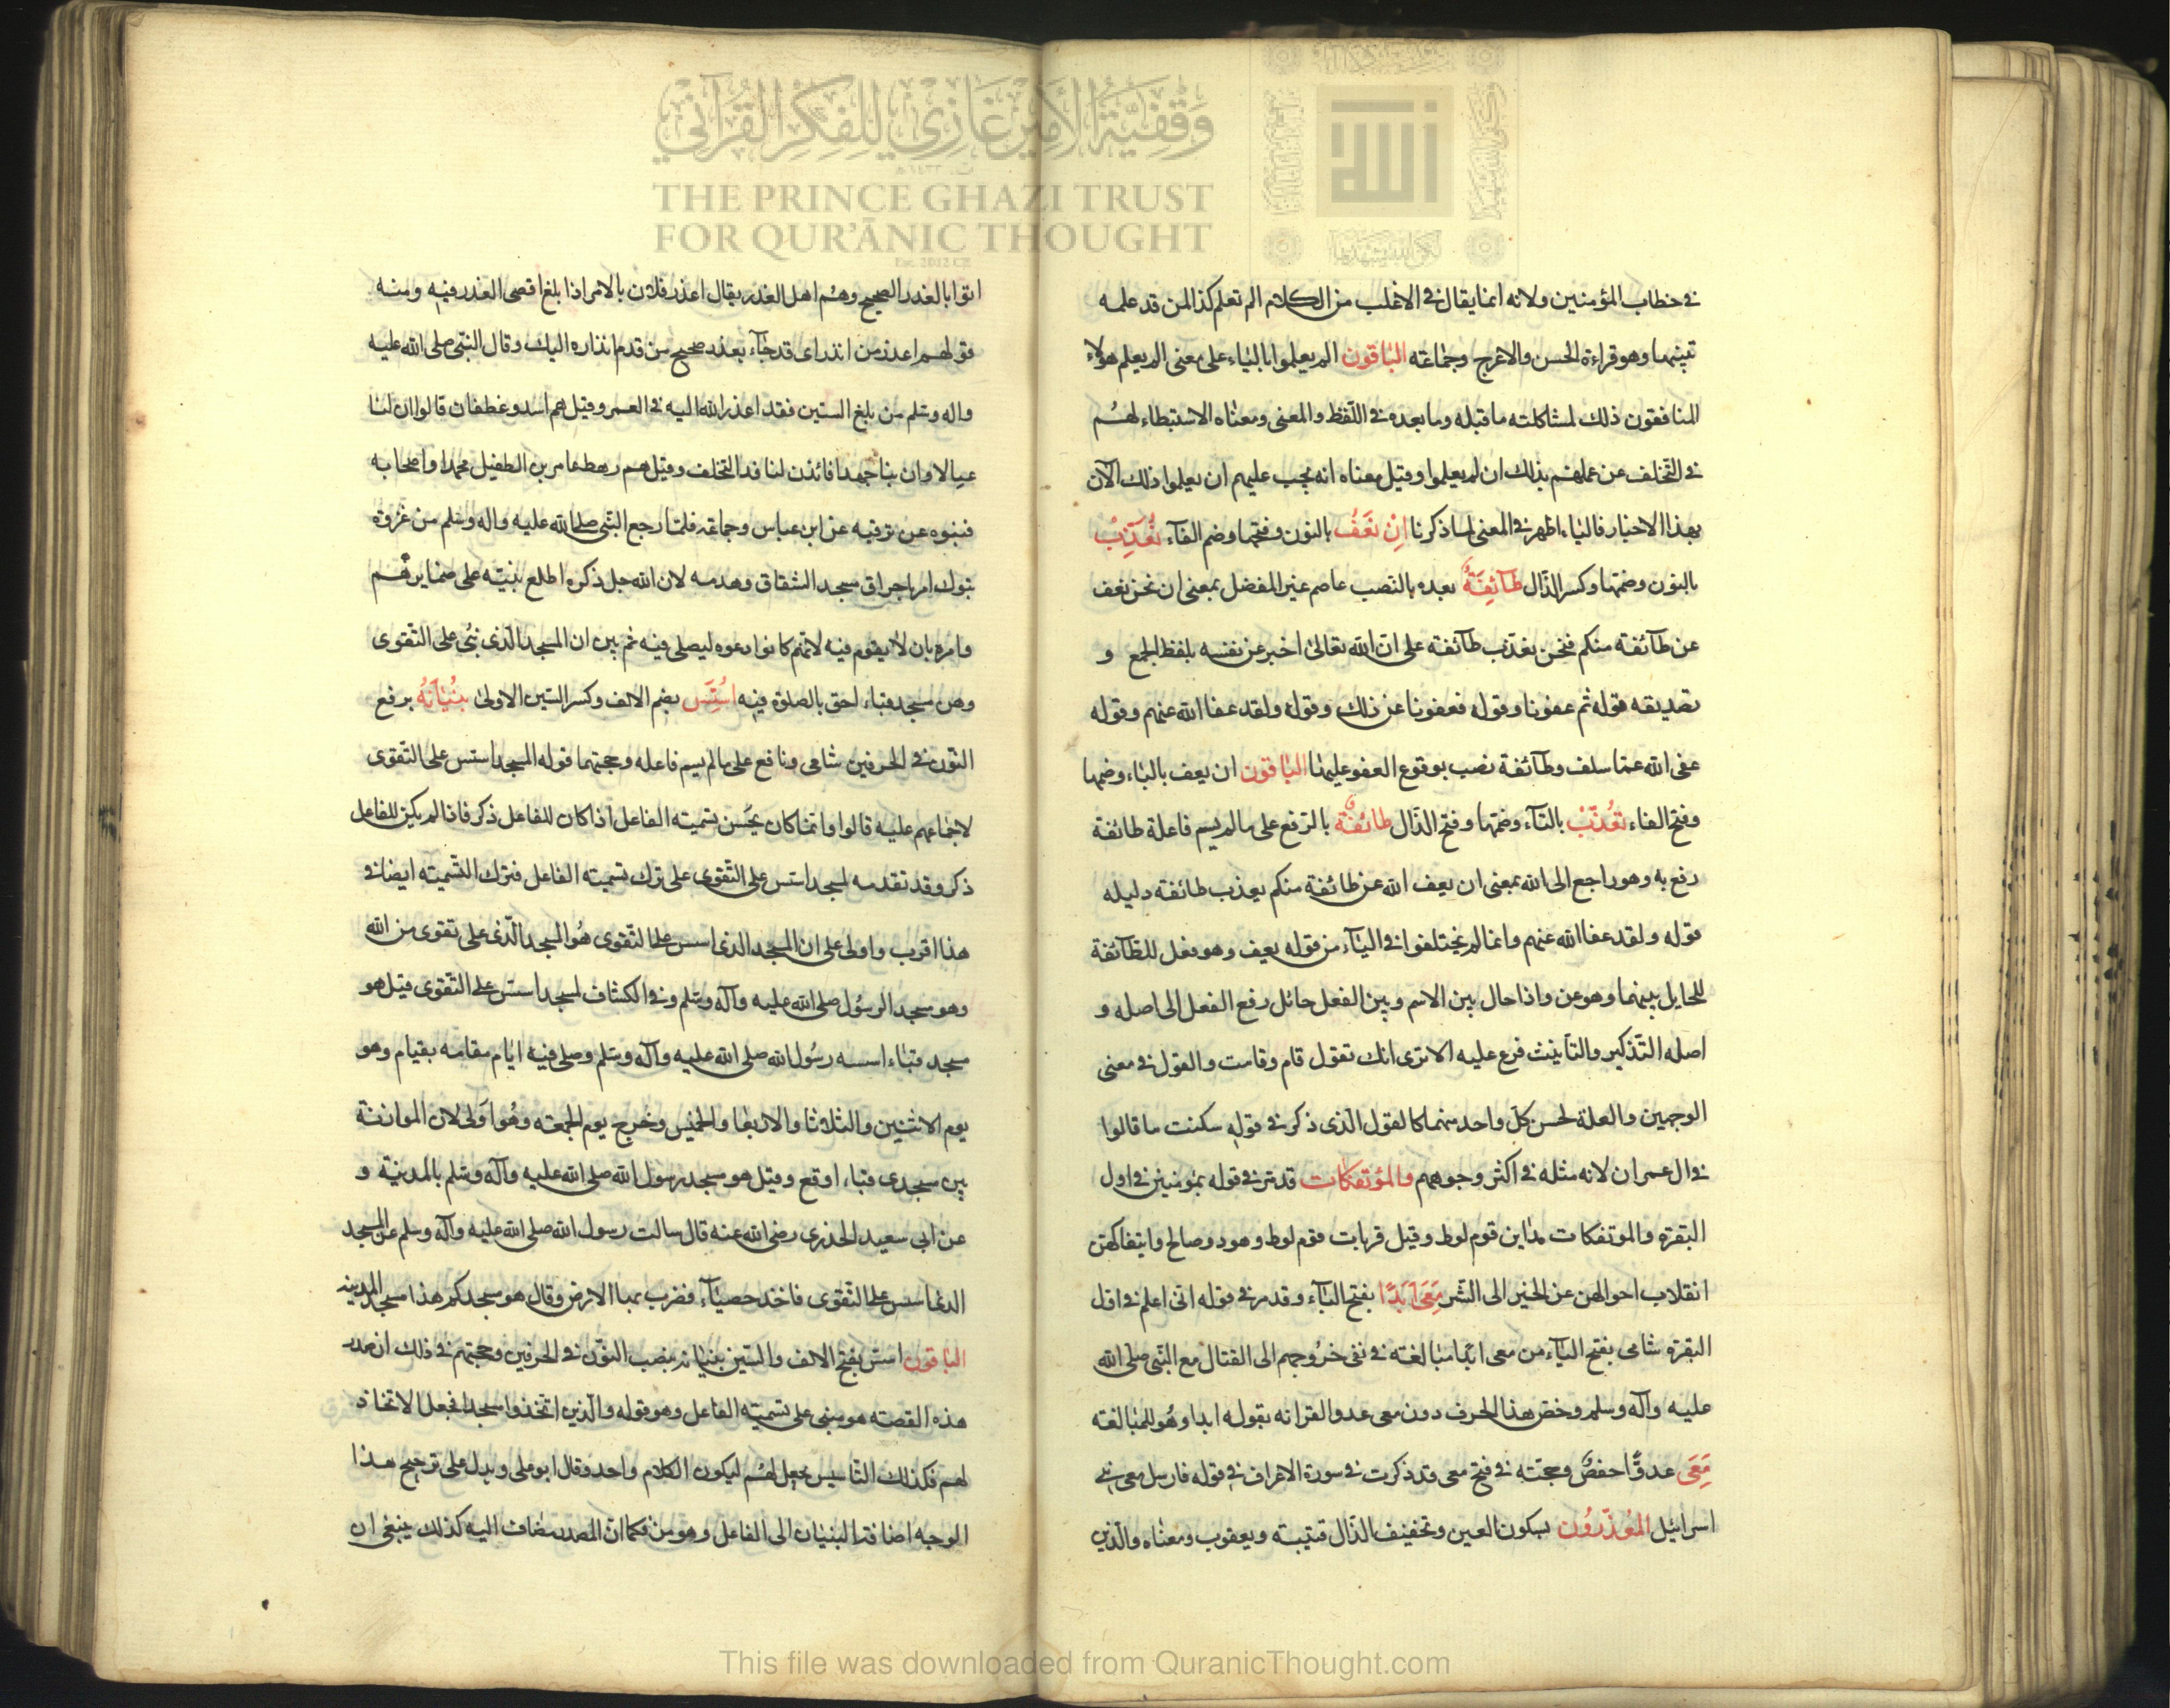 وَقْفِيَّةُ الأَمِيْرِ غَازِي لِلفِكْرِ القُرْآنِي
THE PRINCE GHAZI TRUST
FOR QUR'ĀNIC THOUGHT
Est. 2012 CE
الله
في خطاب المؤمنين ولانه انما يقال في الاغلب من الكلام الم تعلم كذا لمن قد علمه
تبينها وهو قراءة الحسن والاعرج وجماعته الباقون الم يعلموا بالياء على معنى الم يعلم هؤلاء
المنافقون ذلك لمشاكلته ما قبله وما بعده في اللفظ والمعنى ومعناه الاستبطاء لهم
في التخلف عن علمهم بذلك ان لم يعلموا وقيل معناه انه يجب عليهم ان يعلموا ذلك الآن
بهذا الاخبار فالياء اظهر في المعنى لما ذكرنا اِنْ نَعْفُ بالنون وفتحها وضم الفآء نُعَذِّبْ
بالنون وضمها وكسر الذال طَآئِفَةً بعده بالنصب عاصم غير المفضل بمعنى ان نحن نعف
عن طآئفة منكم فنحن نعذب طآئفة على ان الله تعالى اخبر عن نفسه بلفظ الجمع و
تصديقه قوله ثم عفونا وقوله فعفونا عن ذلك وقوله ولقد عفا الله عنهم وقوله
عفى الله عما سلف وطآئفة نصب بوقوع العفو عليها الباقون ان يعف بالياء وضمها
وفتح الفاء تُعَذَّبْ بالتآء وضمها وفتح الذال طائفة بالرفع على ما لم يسم فاعلة طائفة
رفع به وهو راجع الى الله بمعنى ان يعف الله عن طائفة منكم يعذب طائفة دليله
قوله ولقد عفا الله عنهم وانما لم يختلفوا في اليآء من قوله يعف وهو فعل للطآئفة
للحايل بينهما وهو عن واذا حال بين الاسم وبين الفعل حائل رفع الفعل الى اصله و
اصله التذكير والتانيث فرع عليه الا ترى انك تقول قام وقامت والقول في معنى
الوجهين والعلة لحسن كل واحد منهما كالقول الذى ذكر في قوله سكنت ما قالوا
في ال عمران لانه مثله في اكثر وجوههم والمؤتفكات قد مر في قوله بمؤمنين في اول
البقرة والموتفكات مداين قوم لوط وقيل قريات قوم لوط وهود وصالح وايتفاكهن
انقلاب احوالهن عن الخير الى الشر مَعِىَ اَبَدًا بفتح اليآء وقد مر في قوله انى اعلم في اول
البقرة شامى بفتح اليآء من معى ابدا مبالغته في نفى خروجهم الى القتال مع النبى صلى الله
عليه وآله وسلم وخص هذا الحرف دون معى عدوا لقرانه بقوله ابدا وهو للمبالغته
مَعِىَ عدوًّا حفصٌ وحجته في فتح معى قد ذكرت في سورة الاعراف في قوله فارسل معى بنى
اسرائيل المُعْذِرُون بسكون العين وتخفيف الذال قتيبته ويعقوب ومعناه والذين
اتوا بالعذر الصحيح وهم اهل العذر يقال اعذر فلان بالامر اذا بلغ اقصى العذر فيه ومنه
قولهم اعذر من انذر اى قد جآء بعذر صحيح من قدم انذاره اليك وقال النبى صلى الله عليه
واله وسلم من بلغ الستين فقد اعذر الله اليه في العمر وقيل هم اسد وغطفان قالوا ان لنا
عيالا وان بنا جهدا فائذن لنا في التخلف وقيل هم رهط عامر بن الطفيل محمدا واصحابه
عن ابن عباس وجماعة فلما رجع النبى صلى الله عليه واله وسلم من غزوة
تبوك امر باحراق مسجد الشقاق وهدمه لان الله جل ذكره اطلع نبيّه على ضمايرهم
وامره بان لا يقوم فيه لانهم كانوا دعوه ليصلى فيه ثم بين ان المسجد الذى بنى على التقوى
وهى مسجد قباء احق بالصلوة فيه اُسِّسَ بضم الالف وكسر السين الاولى بُنْيَانُهُ برفع
النون في الحرفين شامى ونافع على ما لم يسم فاعله وحجتهما قوله المسجد اسس على التقوى
لاجماعهم عليه قالوا وانما كان يحسن تسميته الفاعل اذا كان للفاعل ذكر فاذا لم يكن للفاعل
ذكر وقد تقدمه لمسجد اسس على التقوى على ترك تسميته الفاعل فترك التسميته ايضا في
هذا اقرب واولى على ان المسجد الذى اسس على التقوى هو المسجد الذى على تقوى من الله
وهو مسجد الرسول صلى الله عليه وآله وسلم وفي الكشاف لمسجد اسس على التقوى قيل هو
مسجد قباء اسسه رسول الله صلى الله عليه وآله وسلم وصلى فيه ايام مقامه بقيام وهو
يوم الاثنين والثلاثا والاربعا والخميس وخرج يوم الجمعته وهو اولى لان الموازنة
بين مسجدى قباء اوقع وقيل هو مسجد رسول الله صلى الله عليه وآله وسلم بالمدينة و
عن ابى سعيد الخدرى رضى الله عنه قال سالت رسول الله صلى الله عليه وآله وسلم عن المسجد
الذى اسس على التقوى فاخذ حصيآء فضرب بها الارض وقال هو مسجدكم هذا مسجد المدينه
الباقون اسس بفتح الالف والسين بنيانه بنصب النون في الحرفين وحجتهم في ذلك ان صدر
هذه القصته هو مبنى على تسميته الفاعل وهو قوله والذين اتخذوا مسجدا فجعل الاتخاذ
لهم فكذلك التاسيس يجعل لهم ليكون الكلام واحد وقال ابو على ويدل على ترجيح هذا
الوجه اضافة البنيان الى الفاعل وهو من فكما ان المصدر مضاف اليه كذلك ينبغى ان
This file was downloaded from QuranicThought.com